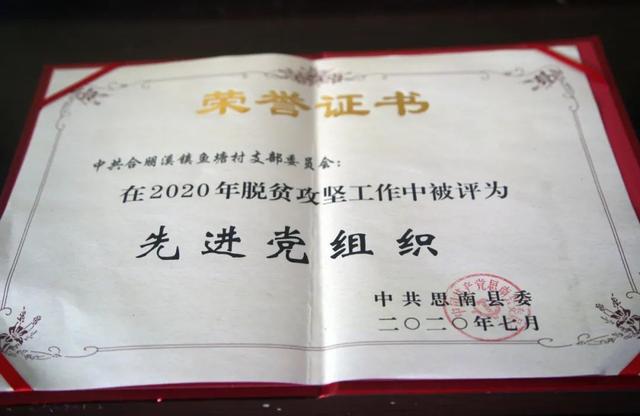 荣誉证书
中共合朋溪镇鱼塘村支部委员会：
在2020年脱贫攻坚工作中被评为
先进党组织
中共思南县委
二〇二〇年七月